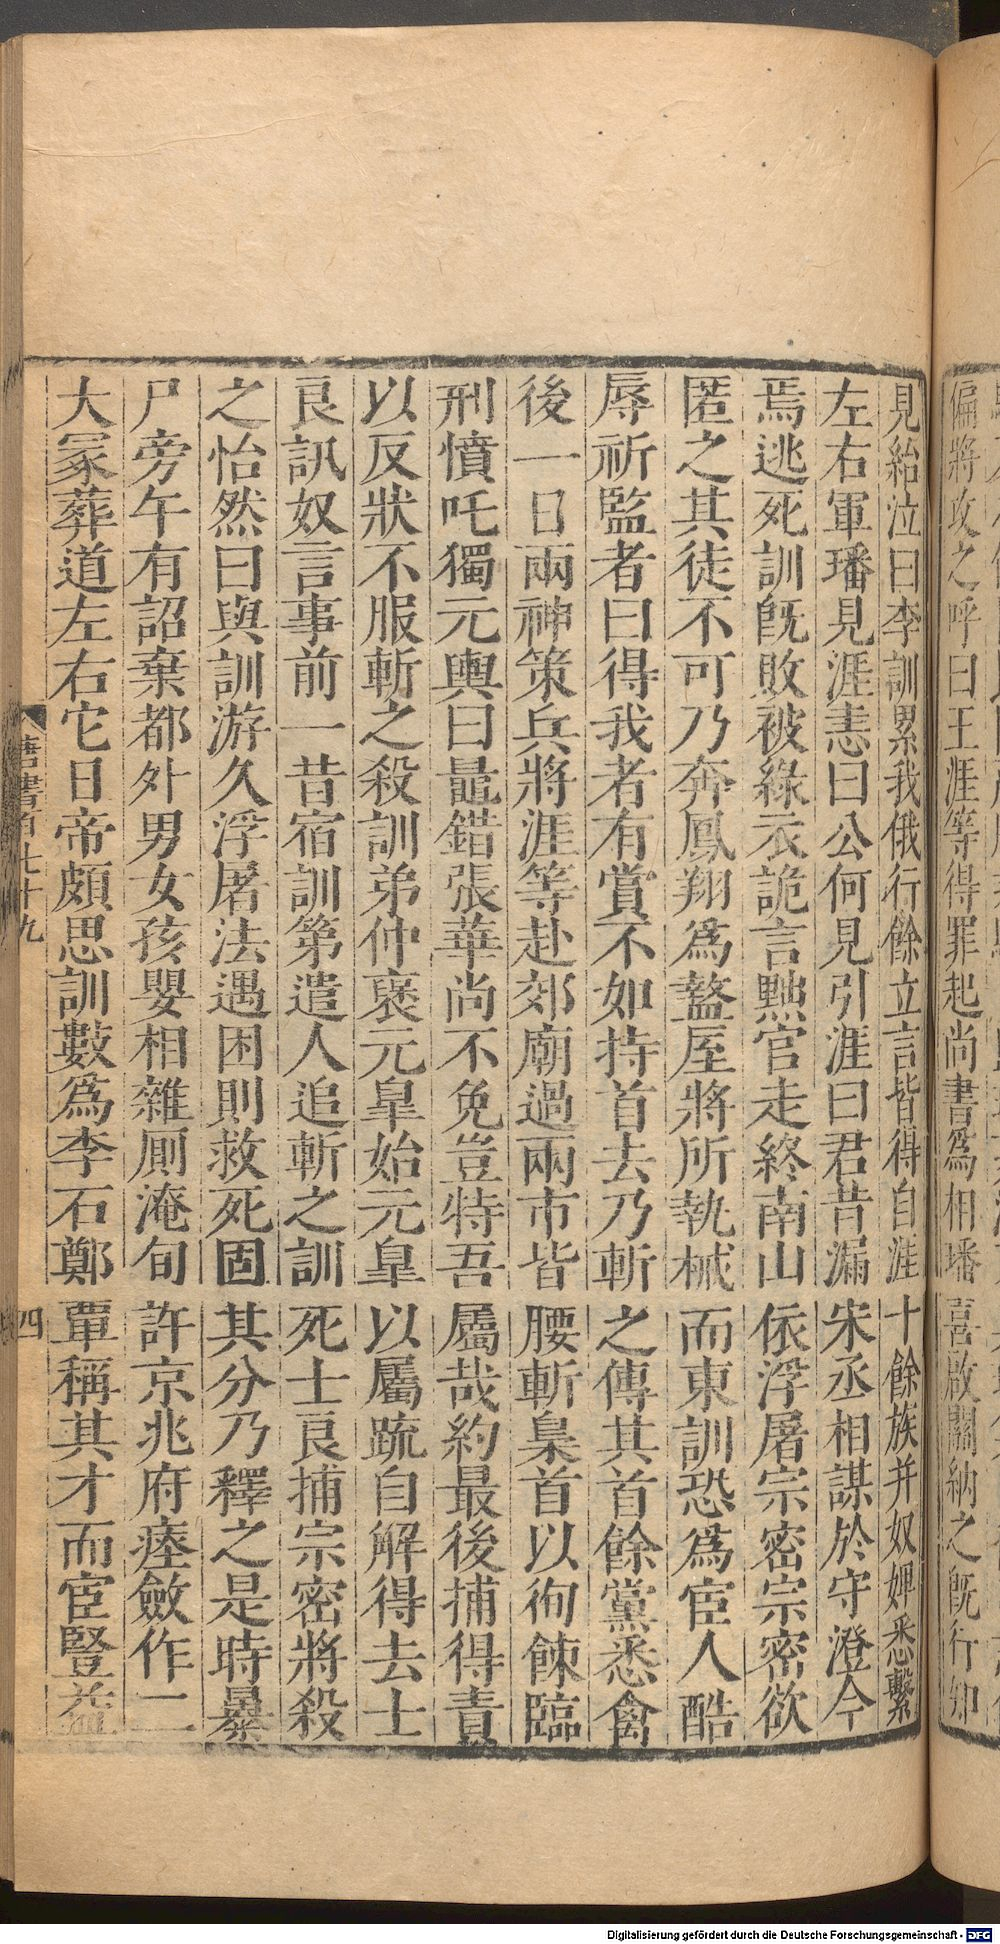 偏將攻之呼曰王涯等得罪起尚書爲相璠喜啟關納之旣行知
見紿泣曰李訓累我俄行餘立言皆得自涯十餘族并奴婢悉繫
左右軍璠見涯恚曰公何見引涯曰君昔漏宋丞相謀於守澄今
焉逃死訓旣敗被綠衣詭言黜官走終南山依浮屠宗密宗密欲
匿之其徒不可乃奔鳳翔爲盩厔將所執械而東訓恐爲宦人酷
辱祈監者曰得我者有賞不如持首去乃斬之傳其首餘黨悉禽
後一日兩神策兵將涯等赴郊廟過兩市皆腰斬梟首以徇餗臨
刑憤吒獨元輿曰鼂錯張華尚不免豈特吾屬哉約最後捕得責
以反狀不服斬之殺訓弟仲褒元臯始元臯以屬疏自解得去士
良訊奴言事前一昔宿訓第遣人追斬之訓死士良捕宗密將殺
之怡然曰與訓游久浮屠法遇困則救死固其分乃釋之是時暴
尸旁午有詔棄都外男女孩嬰相雜廁淹旬許京兆府瘞斂作二
大冢葬道左右它日帝頗思訓數爲李石鄭覃稱其才而宦豎益
唐書百七十九
四
Digitalisierung gefördert durch die Deutsche Forschungsgemeinschaft - DFG